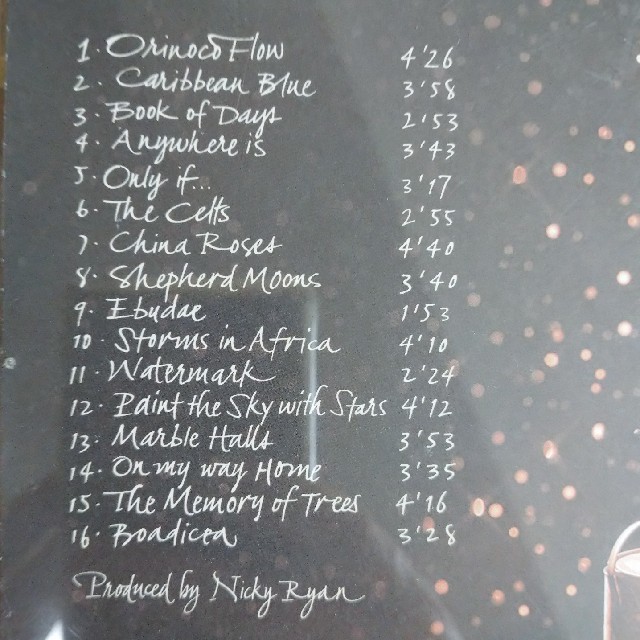 1. Orinoco Flow 4'26
2. Caribbean Blue 3'58
3. Book of Days 2'53
4. Anywhere is 3'43
5. Only if... 3'17
6. The Celts 2'55
7. China Roses 4'40
8. Shepherd Moons 3'40
9. Ebudae 1'53
10. Storms in Africa 4'10
11. Watermark 2'24
12. Paint the Sky with Stars 4'12
13. Marble Halls 3'53
14. On my way Home 3'35
15. The Memory of Trees 4'16
16. Boadicea 3'28
Produced by Nicky Ryan